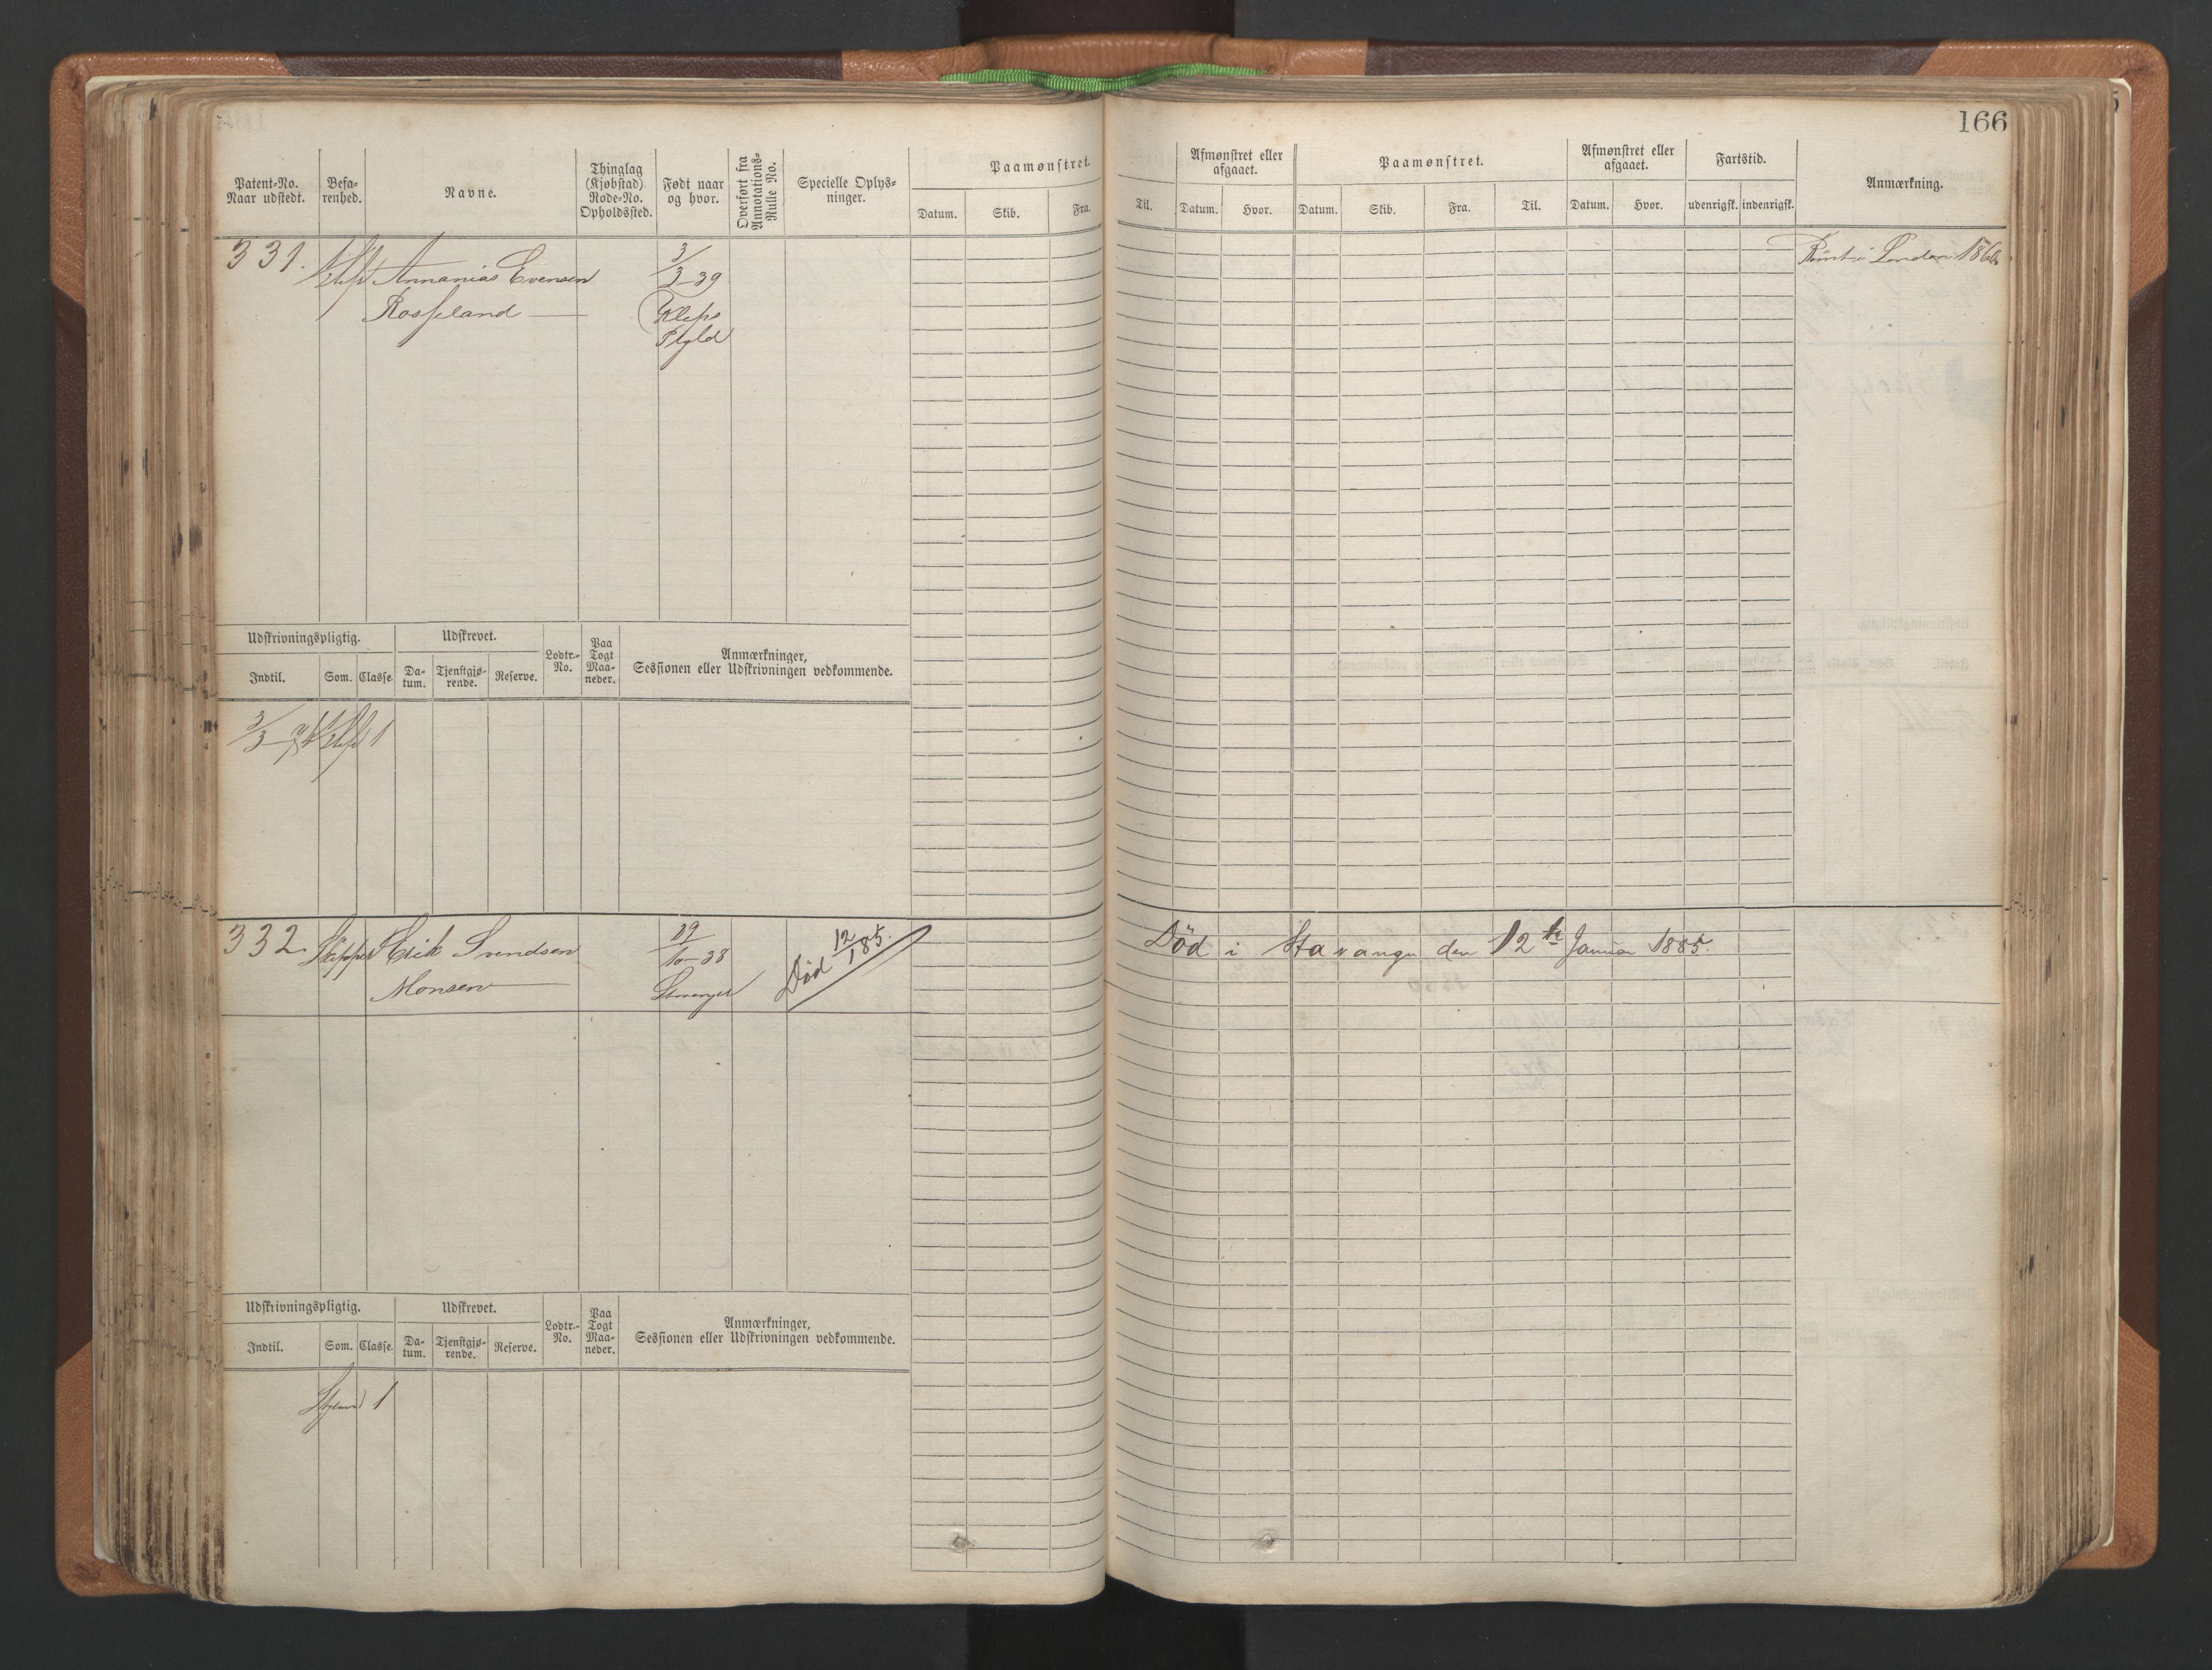 166
Patent-No.
Naar udstedt.
Befa-
renhed.
Navne.
Thinglag
(Kjøbstad)
Rode-No.
Opholdssted.
Født naar
og hvor.
Overført fra
Annotations-
Rulle No.
Specielle Oplys-
ninger.
Paamønstret.
Datum. Skib. Fra. Til.
Afmønstret eller
afgaaet.
Datum. Hvor.
Paamønstret.
Datum. Skib. Fra. Til.
Afmønstret eller
afgaaet.
Datum. Hvor.
Fartstid.
udenrigsk. indenrigsk.
Anmærkning.
331. Annanias Evensen
Rosseland
3/3-39
Klepp
Pgld
Rømt i London 1866
Udskrivningspligtig.
Indtil. Som. Classe.
Udskrevet.
Da-
tum.
Tjenstgjø-
rende.
Reserve.
Lodtr.-
No.
Paa
Togt
Maa-
neder.
Anmærkninger,
Sessionen eller Udskrivningen vedkommende.
3/3 1
332. Skipper Erik Svendsen
Monsen
29/10-38
Stavanger
Død 12/1 85.
Død i Stavanger den 12te Januar 1885.
Udskrivningspligtig.
Indtil. Som. Classe.
Udskrevet.
Da-
tum.
Tjenstgjø-
rende.
Reserve.
Lodtr.-
No.
Paa
Togt
Maa-
neder.
Anmærkninger,
Sessionen eller Udskrivningen vedkommende.
1